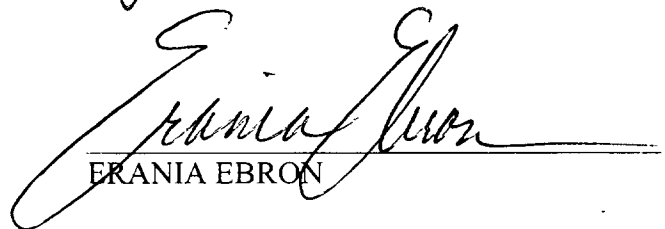 Erania Ebron
ERANIA EBRON